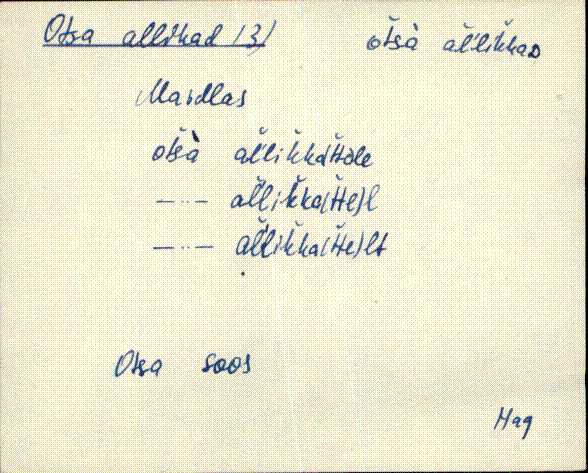 Otsa allikad /3/ otsà al̆likkaD
Maidlas
otsà al̆likka(tte)le
—··— al̆likka(tte)l
—··— al̆likka(tte)lt
Otsa soos
Hag